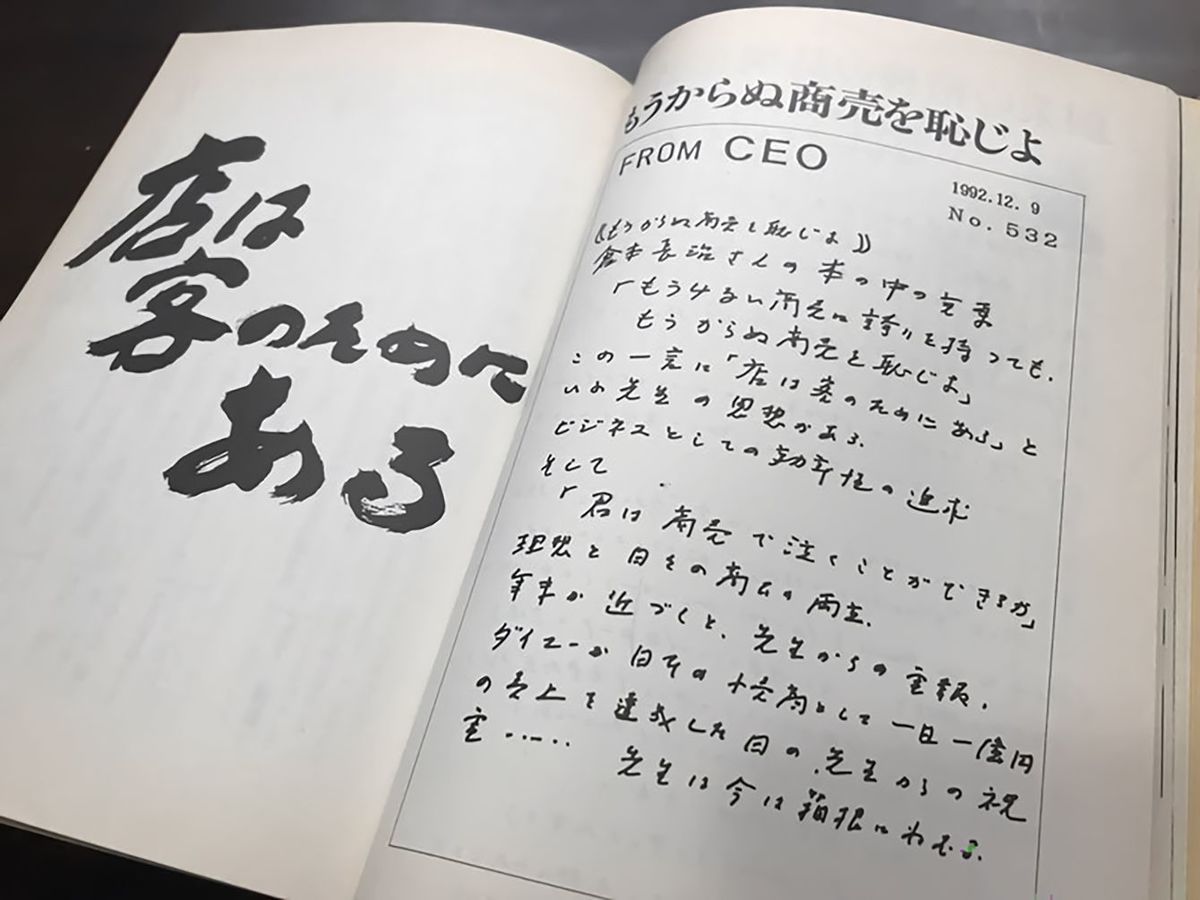 店は
客のために
ある
もうからぬ商売を恥じよ
FROM CEO
1992.12.9
No.532
《もうからぬ商売を恥じよ》
倉本長治さんの本の中の言葉
「もうけない商売に誇りを持っても、
もうからぬ商売を恥じよ」
この一言に「店は客のためにある」と
いう先生の思想がある。
ビジネスとしての効率性の追求
そして
「君は商売で泣くことができるか」
理想と日々の商いの両立。
年末が近づくと、先生からの電報。
ダイエーが日本の小売商として一日一億円
の売上を達成した日の、先生からの祝
電……
先生は今は箱根にねむる。